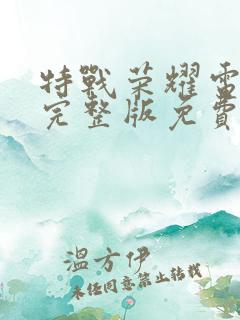 特戰荣耀電
完整版免費
溫方伊
未经同意禁止转载